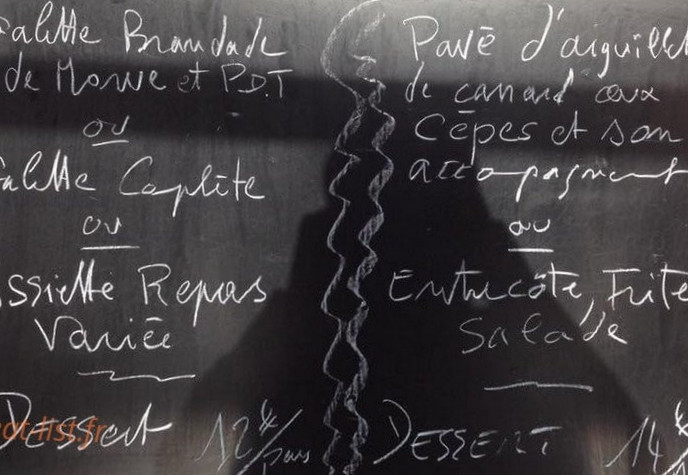 alette Brandade
de Morue et P.D.T
ou
alette Complète
ou
ssiette Repas
Variée
Dessert 12€/pers
Pavé d'aiguillet
de canard aux
Cêpes et son
accompagnement
ou
Entrecôte, Frite
Salade
DESSERT 14€
ot-list.fr